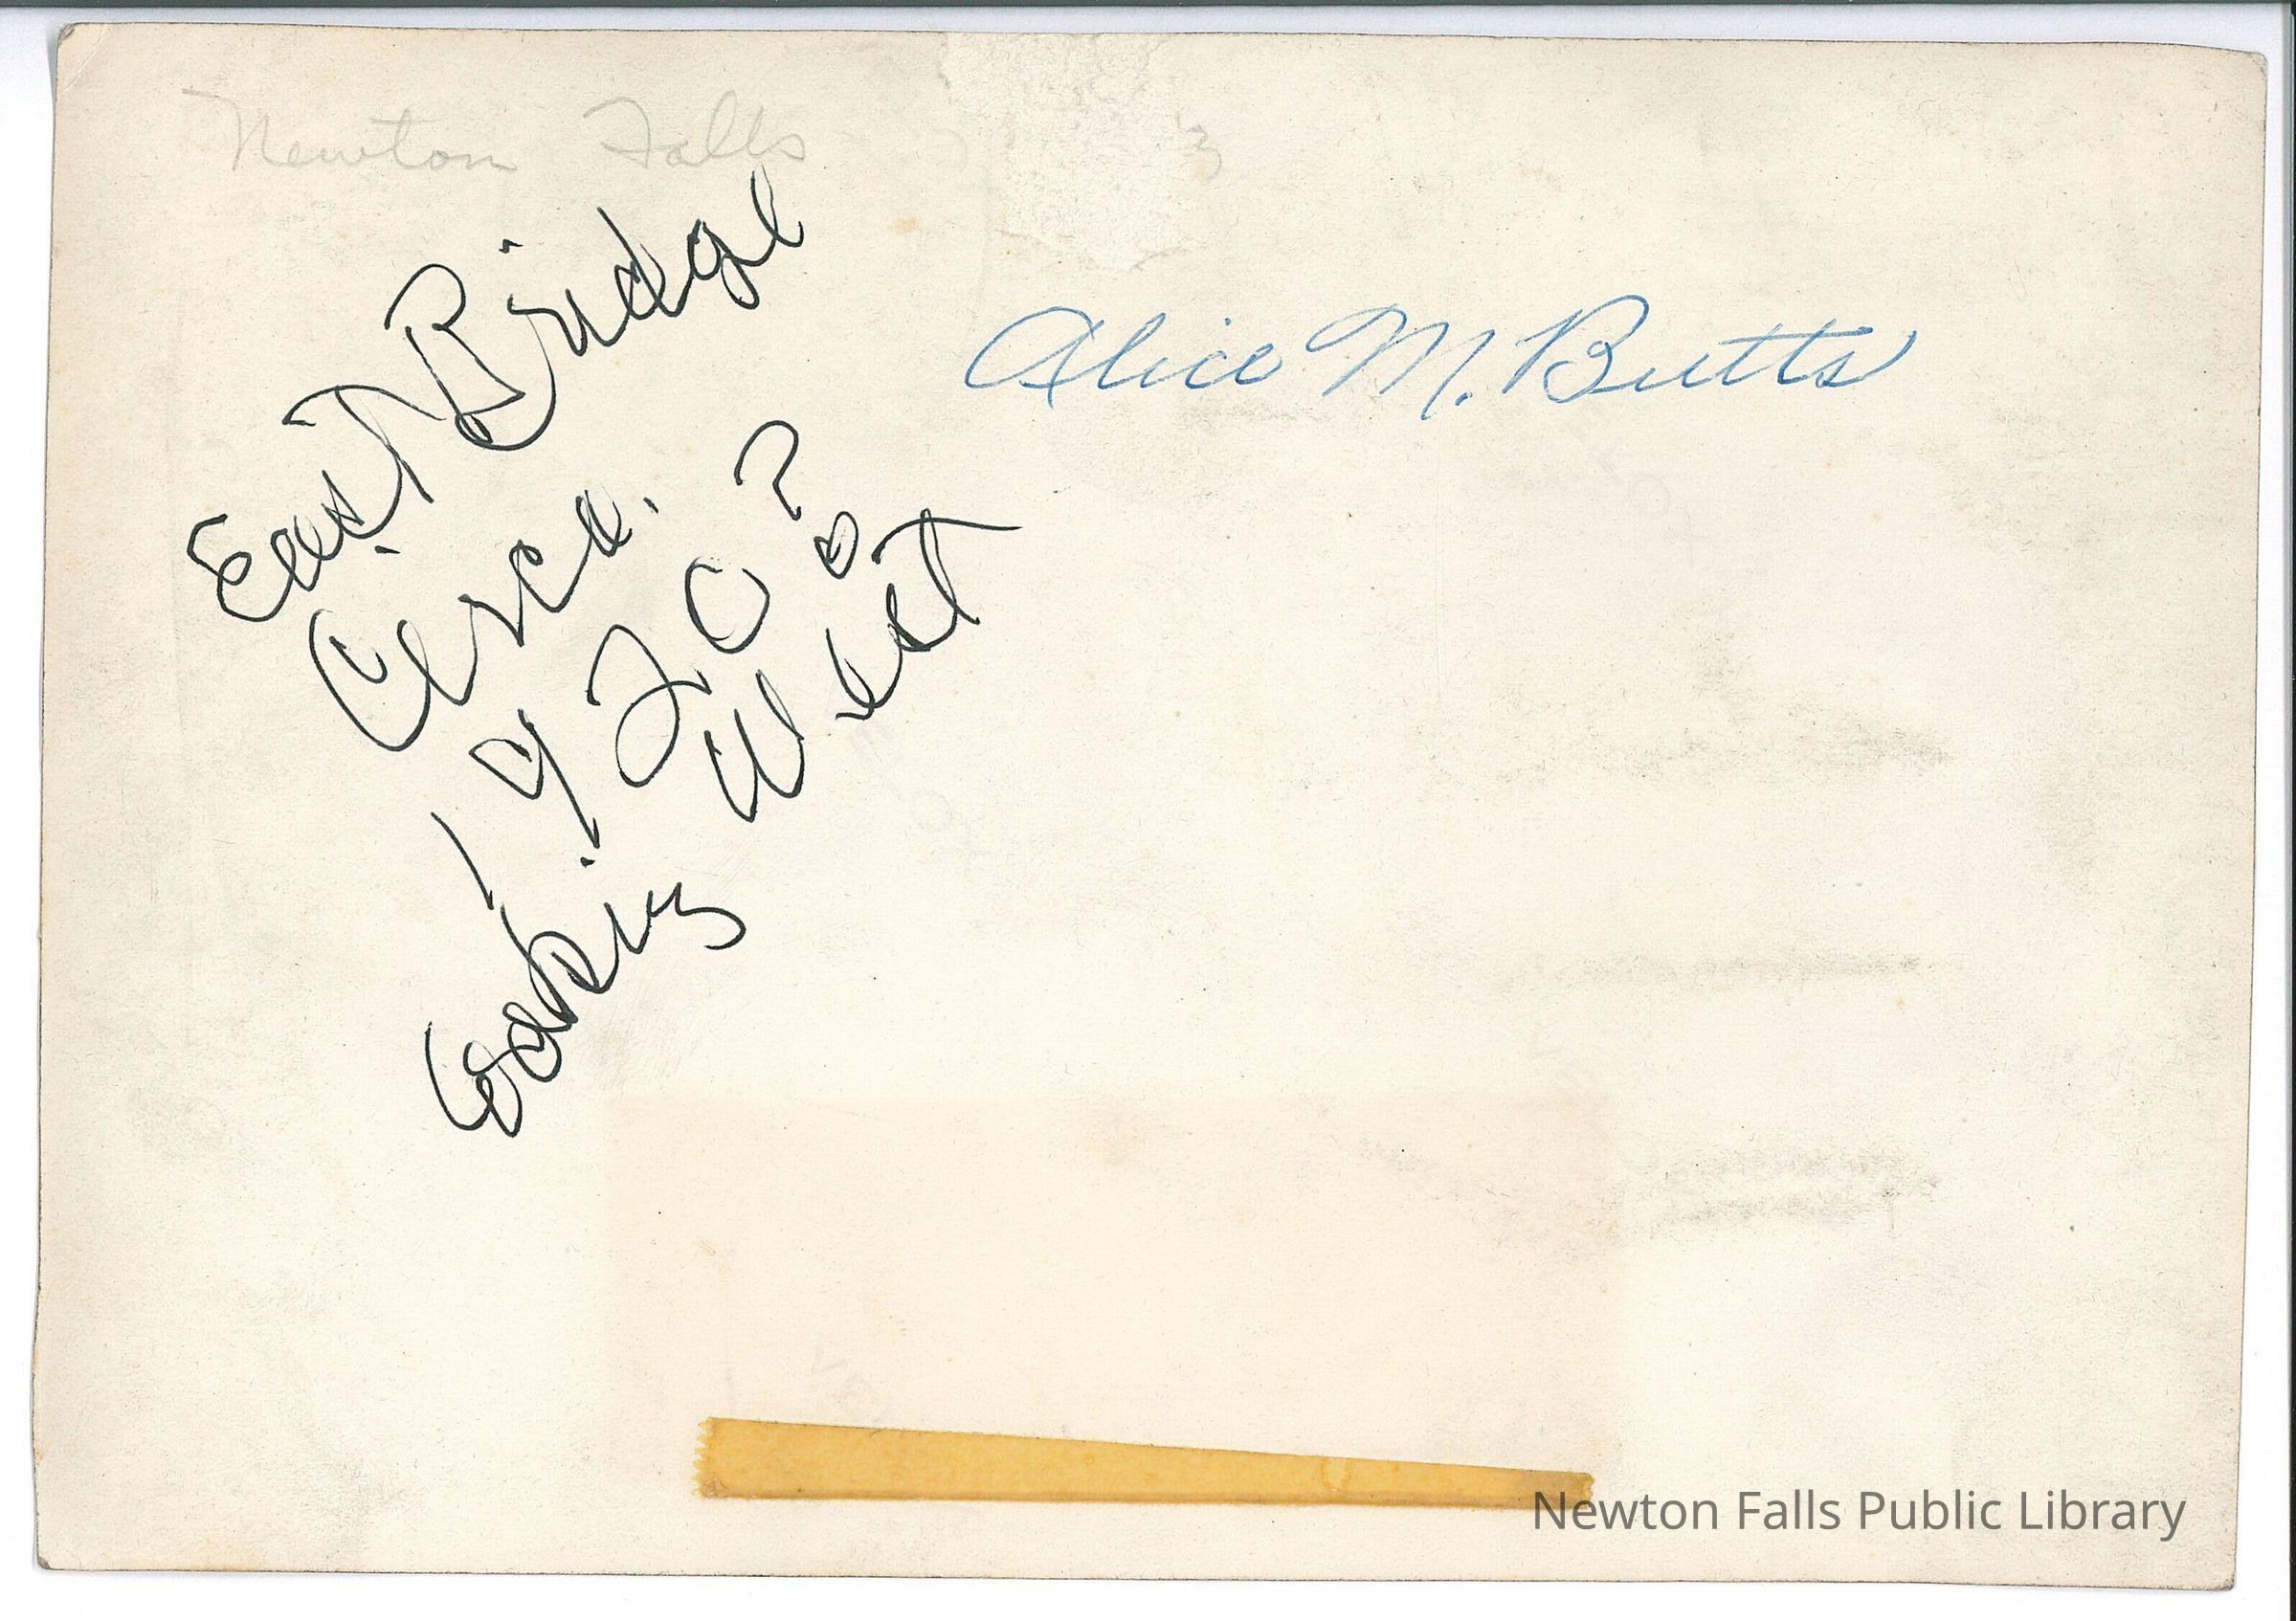 Newton Falls
3
East Bridge
Circa.
1920?
Looking West
Alice M. Butts
Newton Falls Public Library